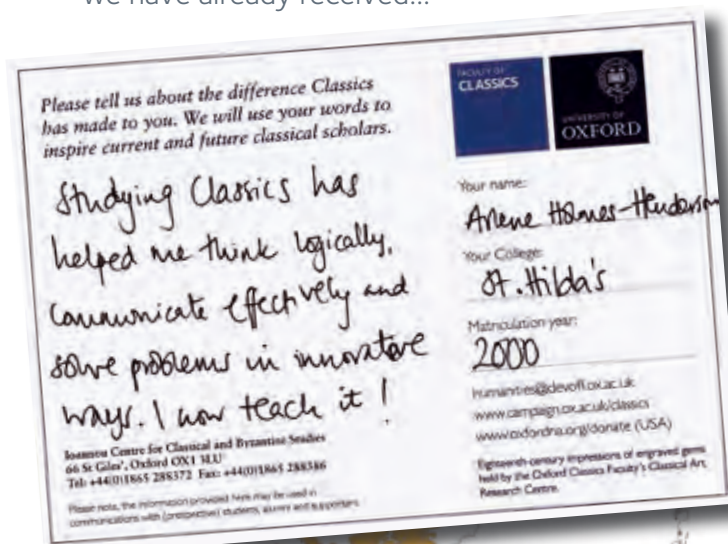 we have already received...
Please tell us about the difference Classics
has made to you. We will use your words to
inspire current and future classical scholars.
Studying Classics has
helped me think logically,
communicate effectively and
solve problems in innovative
ways. I now teach it!
Ioannou Centre for Classical and Byzantine Studies
66 St Giles', Oxford OX1 3LU
Tel: +44(0)1865 288372 Fax: +44(0)1865 288386
Please note, the information provided here may be used in
communications with (prospective) students, alumni and supporters.
FACULTY OF
CLASSICS
UNIVERSITY OF
OXFORD
Your name:
Arlene Holmes-Henderson
Your College:
St. Hilda's
Matriculation year:
2000
humanities@devoff.ox.ac.uk
www.campaign.ox.ac.uk/classics
www.oxfordna.org/donate (USA)
Eighteenth-century impressions of engraved gems
held by the Oxford Classics Faculty's Classical Art
Research Centre.